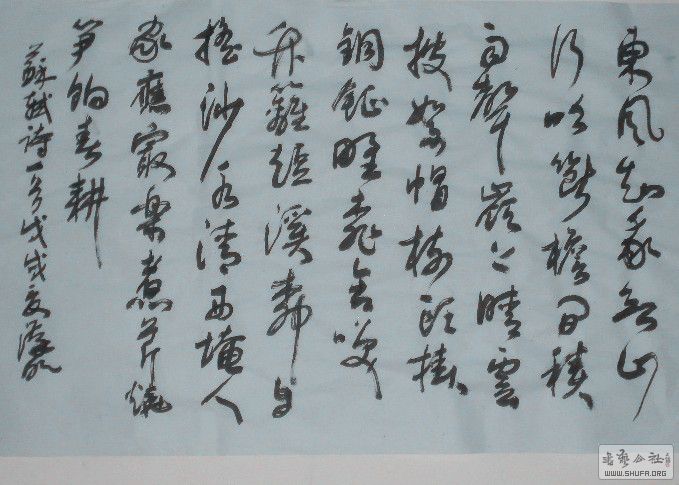 東風知我欲山
行吹斷檐間積
雨聲嶺上晴雲
披絮帽樹頭掛
銅鉦野桃含笑
竹籬短溪柳自
搖沙水清西埯人
家應最樂煮芹燒
筍餉春耕
蘇軾詩一首戊戌夏
书艺公社
WWW.SHUFA.ORG